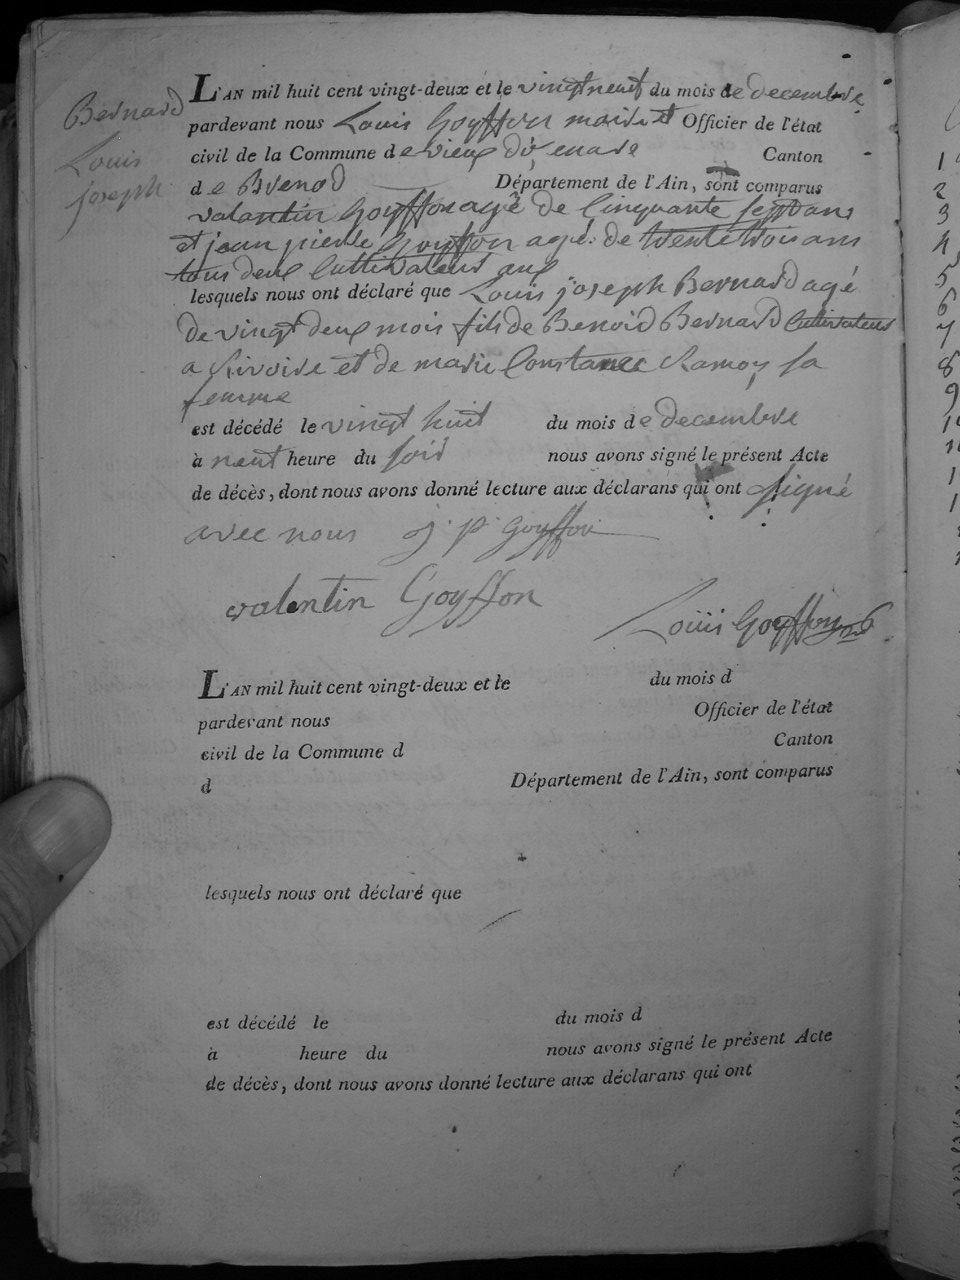 Bernard
Louis
joseph
L'AN mil huit cent vingt-deux et le vingt neuf du mois de decembre
pardevant nous Louis Goyffon maire et Officier de l'état
civil de la Commune de vieux d'izenave Canton
de Brenod Département de l'Ain, sont comparus
valentin Goyffon agé de Cinquante sept ans
et jean pierre Goyffon agé de trente trois ans
tous deux Cultivateurs aux
lesquels nous ont déclaré que Louis joseph Bernard agé
de vingt deux mois fils de Benoid Bernard Cultivateur
a Rivoire et de marie Constance Ramoy sa
femme
est décédé le vingt huit du mois de decembre
à neuf heure du soir nous avons signé le présent Acte
de décès, dont nous avons donné lecture aux déclarans qui ont signé
avec nous j. p. Goyffon
valentin Goyffon
Louis Goyffon
L'AN mil huit cent vingt-deux et le du mois d
pardevant nous Officier de l'état
civil de la Commune d Canton
d Département de l'Ain, sont comparus
lesquels nous ont déclaré que
est décédé le du mois d
à heure du nous avons signé le présent Acte
de décès, dont nous avons donné lecture aux déclarans qui ont
1
2
3
4
5
6
7
8
9